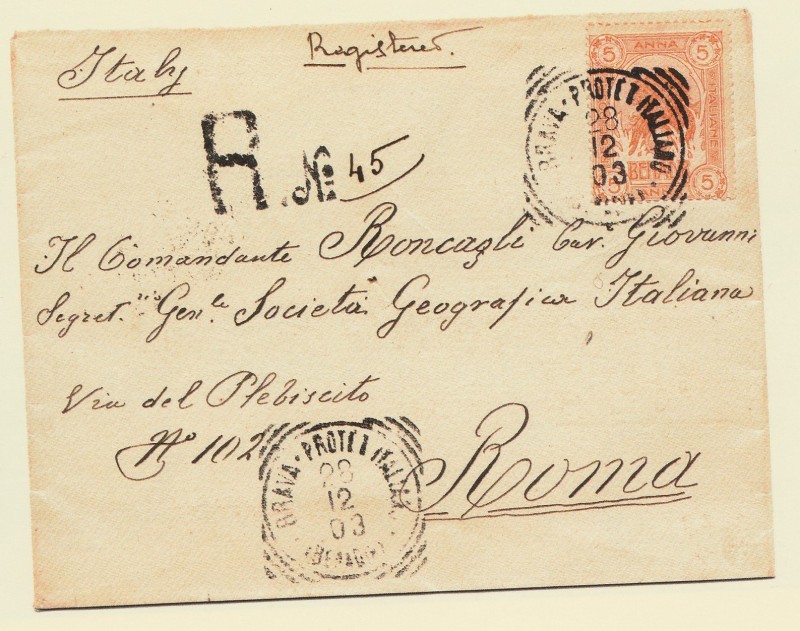 Italy
Registered.
R. No 45
5 ANNA 5
ITALIANE
BENA
5 ANNA 5
BRAVA · PROTET ITALIANO
28
12
03
Il Comandante Roncagli Cav. Giovanni
Segret.rio Gen.le Società Geografica Italiana
Via del Plebiscito
No 102
Roma
BRAVA · PROTET ITALIANO
28
12
03
(BENADIR)